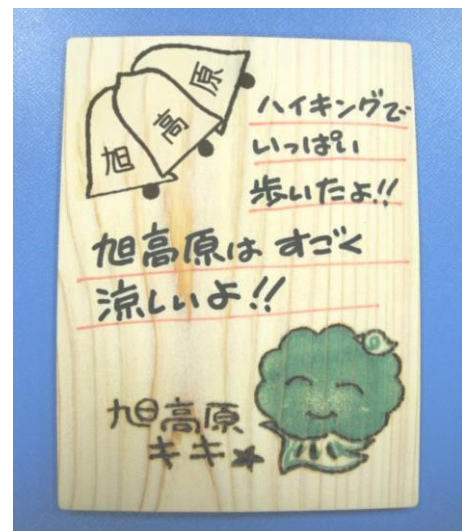 旭高原
ハイキングで
いっぱい
歩いたよ!!
旭高原は すごく
涼しいよ!!
旭高原
キキ★